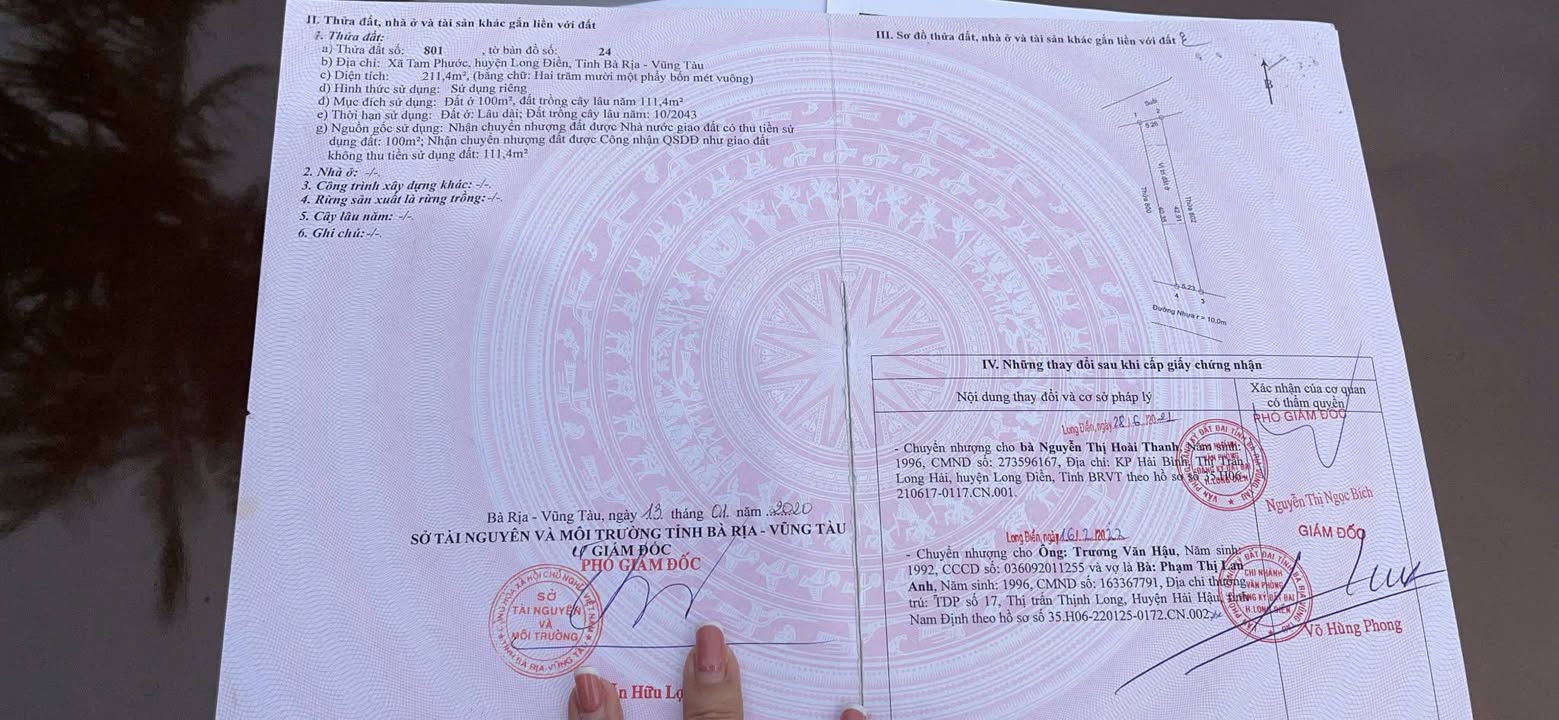 II. Thửa đất, nhà ở và tài sản khác gắn liền với đất
1. Thửa đất:
a) Thửa đất số: 801 , tờ bản đồ số: 24
b) Địa chỉ: Xã Tam Phước, huyện Long Điền, Tỉnh Bà Rịa - Vũng Tàu
c) Diện tích: 211,4m², (bằng chữ: Hai trăm mười một phẩy bốn mét vuông)
d) Hình thức sử dụng: Sử dụng riêng
đ) Mục đích sử dụng: Đất ở 100m², đất trồng cây lâu năm 111,4m²
e) Thời hạn sử dụng: Đất ở: Lâu dài; Đất trồng cây lâu năm: 10/2043
g) Nguồn gốc sử dụng: Nhận chuyển nhượng đất được Nhà nước giao đất có thu tiền sử
dụng đất: 100m²; Nhận chuyển nhượng đất được Công nhận QSDĐ như giao đất
không thu tiền sử dụng đất: 111,4m²
2. Nhà ở: -/-.
3. Công trình xây dựng khác: -/-.
4. Rừng sản xuất là rừng trồng: -/-.
5. Cây lâu năm: -/-.
6. Ghi chú: -/-.
Bà Rịa - Vũng Tàu, ngày 13 tháng 01 năm 2020
SỞ TÀI NGUYÊN VÀ MÔI TRƯỜNG TỈNH BÀ RỊA - VŨNG TÀU
GIÁM ĐỐC
PHÓ GIÁM ĐỐC
SỞ
TÀI NGUYÊN
VÀ
MÔI TRƯỜNG
n Hữu Lộ
III. Sơ đồ thửa đất, nhà ở và tài sản khác gắn liền với đất
B
Suối
1 2
5.26
Vị trí đất ở
Thửa 800
Thửa 802
42.91
5.23
4 3
Đường Nhựa r = 10.0m
IV. Những thay đổi sau khi cấp giấy chứng nhận
Nội dung thay đổi và cơ sở pháp lý
Xác nhận của cơ quan
có thẩm quyền
Long Điền, ngày 28/6/2021
PHÓ GIÁM ĐỐC
- Chuyển nhượng cho bà Nguyễn Thị Hoài Thanh, Năm sinh:
1996, CMND số: 273596167, Địa chỉ: KP Hải Bình, Thị Trấn
Long Hải, huyện Long Điền, Tỉnh BRVT theo hồ sơ số 35.H06-
210617-0117.CN.001.
Nguyễn Thị Ngọc Bích
Long Điền, ngày 16/2/2022
GIÁM ĐỐC
- Chuyển nhượng cho Ông: Trương Văn Hậu, Năm sinh:
1992, CCCD số: 036092011255 và vợ là Bà: Phạm Thị Lan
Anh, Năm sinh: 1996, CMND số: 163367791, Địa chỉ thường
trú: TDP số 17, Thị trấn Thịnh Long, Huyện Hải Hậu, tỉnh
Nam Định theo hồ sơ số 35.H06-220125-0172.CN.002
CHI NHÁNH
VĂN PHÒNG
ĐĂNG KÝ ĐẤT ĐAI
H. LONG ĐIỀN
Võ Hùng Phong